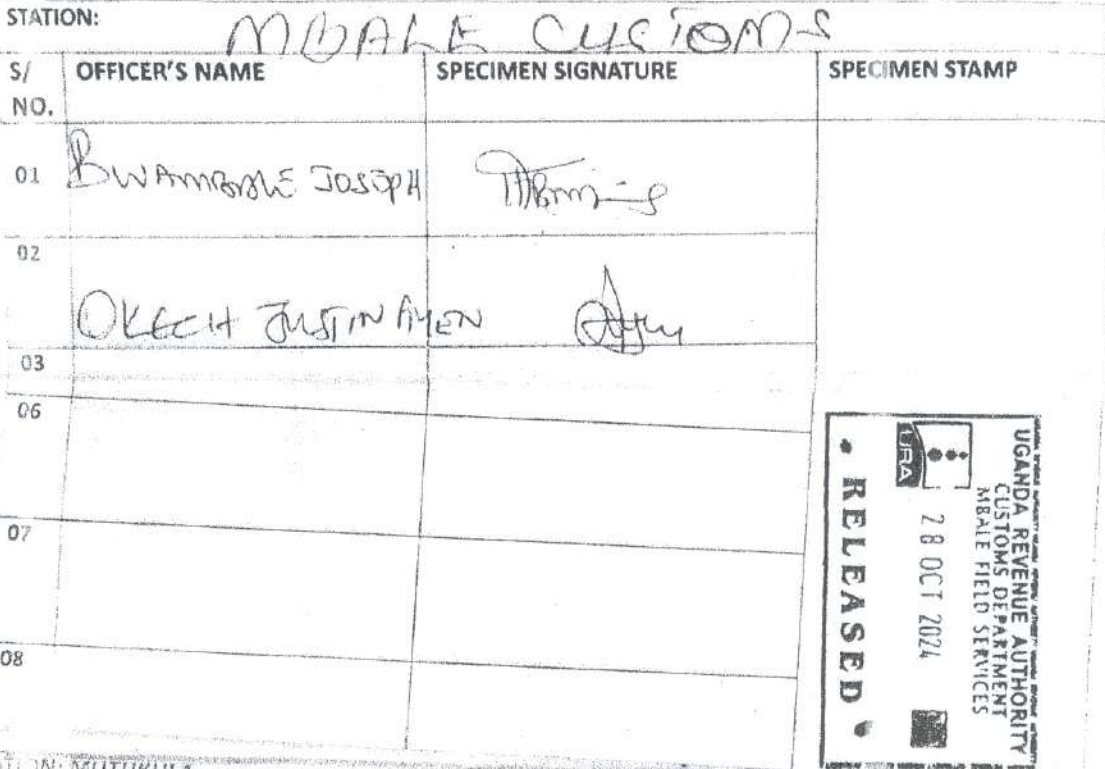 STATION: MBALE CUSTOMS
S/ NO. OFFICER'S NAME SPECIMEN SIGNATURE SPECIMEN STAMP
01 BWAMBALE JOSEPH
02 OKECH JUSTIN AYEN
03
06
07
08
UGANDA REVENUE AUTHORITY
CUSTOMS DEPARTMENT
MBALE FIELD SERVICES
URA
28 OCT 2024
RELEASED
STATION: MUTUKULA